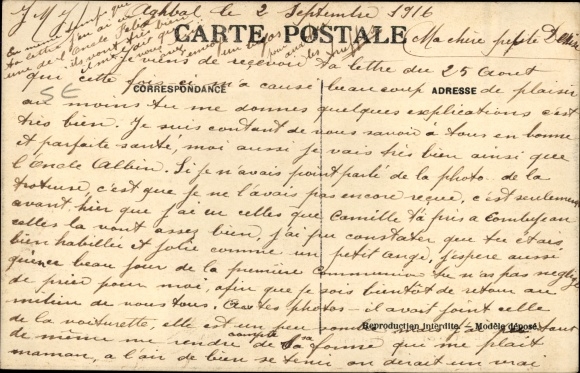 J M J Aghbal le 2 Septembre 1916
En même temps que
ta lettre j'ai
une de l'Oncle Félix
ils vont très bien
CARTE POSTALE
Ma chère petite
Je viens de recevoir ta lettre du 25 Aout
qui cette fois-ci m'a cause beaucoup de plaisir
CORRESPONDANCE
ADRESSE
SE
au moins tu me donnes quelques explications c'est
très bien. Je suis content de vous savoir a tous en bonne
et parfaite santé, moi aussi je vais très bien ainsi que
l'Oncle Albin. Si je n'avais point parlé de la photo de la
troteuse, c'est que je ne l'avais pas encore reçue, c'est seulement
avant hier que j'ai eu celles que Camille t'a pris a Combejean
celles la vont assez bien, j'ai pu constater que tu étais
bien habillée et jolie comme un petit ange, j'espère aussi
qu'en ce beau jour de la première Communion tu n'as pas négligé
de prier pour moi, afin que je sois bientôt de retour au
milieu de vous tous. Cartes photos - il avait joint celle
de la voiturette, elle est un peu
tout
Reproduction interdite. — Modèle déposé.
de même me rendre compte de sa forme qui me plait
maman, a l'air de bien se tenir on dirait un vrai